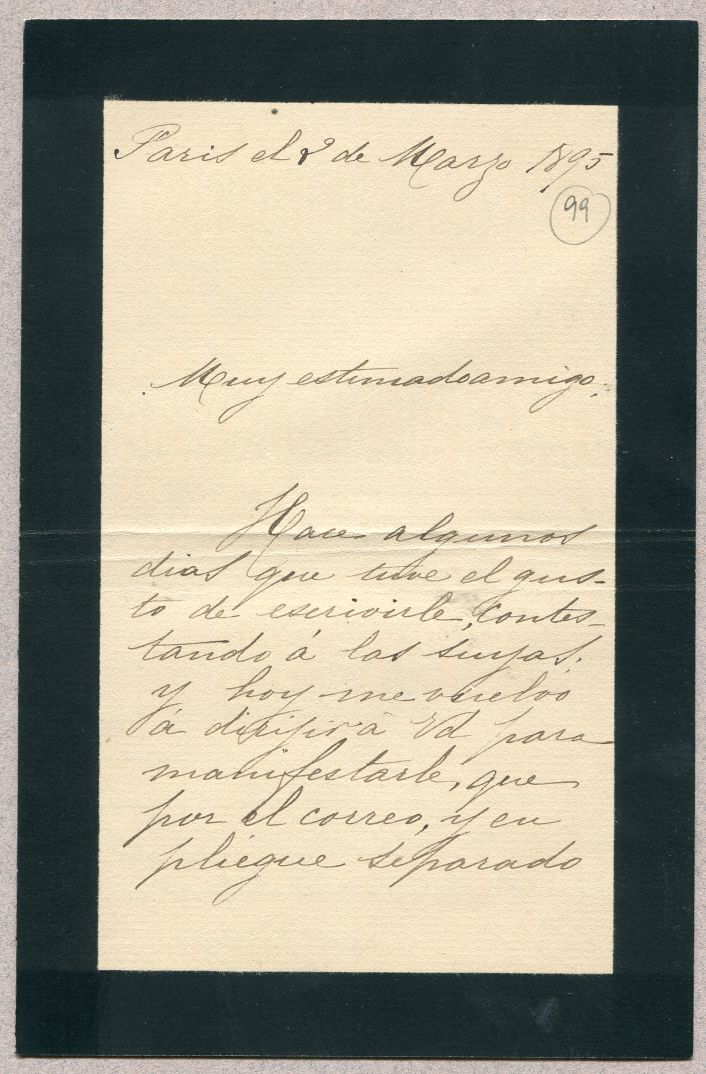 Paris el 2 de Marzo 1895
99
Muy estimado amigo.
Hace algunos
dias que tuve el gus-
to de escrivirle, contes-
tando á las suyas;
y hoy me vuelvo
á dirijir á Vd para
manifestarle, que
por el correo, y en
pliegue separado